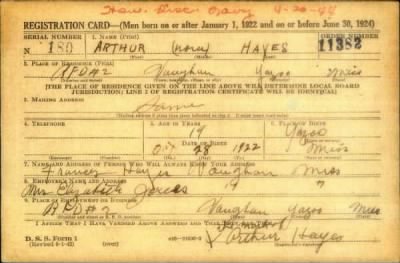 Hon. Disc. Navy 4-20-44
REGISTRATION CARD—(Men born on or after January 1, 1922 and on or before June 30, 1924)
SERIAL NUMBER 1. NAME (Print) ORDER NUMBER
N 180 ARTHUR (none) HAYES 11382
2. PLACE OF RESIDENCE (Print)
RFD#2 Vaughan Yazoo Miss
[THE PLACE OF RESIDENCE GIVEN ON THE LINE ABOVE WILL DETERMINE LOCAL BOARD
JURISDICTION; LINE 2 OF REGISTRATION CERTIFICATE WILL BE IDENTICAL]
3. MAILING ADDRESS
Same
4. TELEPHONE 5. AGE IN YEARS 6. PLACE OF BIRTH
19 Yazoo
DATE OF BIRTH
28 1922 Miss
7. NAME AND ADDRESS OF PERSON WHO WILL ALWAYS KNOW YOUR ADDRESS
Hayes Vaughan Miss
8. EMPLOYER'S NAME AND ADDRESS
Mrs Elizabeth
9. PLACE OF EMPLOYMENT OR BUSINESS
RFD#2 Vaughan Yazoo Miss
I AFFIRM THAT I HAVE VERIFIED ABOVE ANSWERS AND THAT THEY ARE TRUE.
D. S. S. Form 1
Arthur Hayes